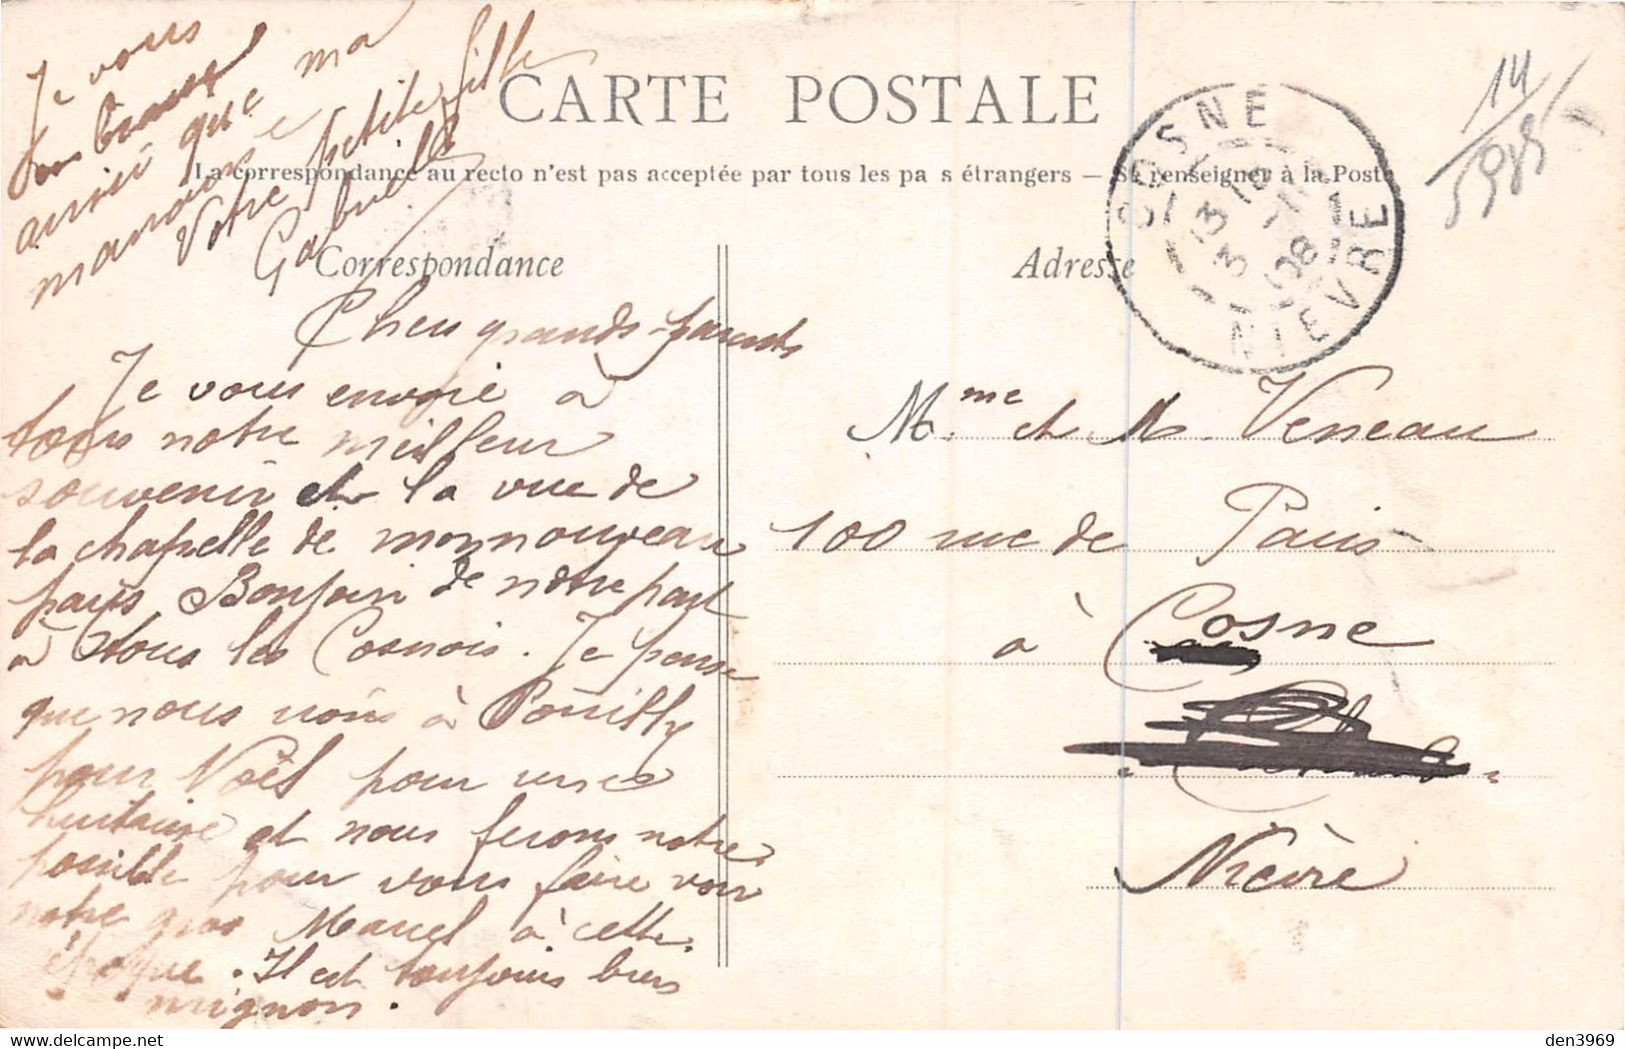 CARTE POSTALE
La correspondance au recto n'est pas acceptée par tous les pa s étrangers — Se renseigner à la Poste
Correspondance
Chers grands-parents
Je vous envoie à
tous notre meilleur
souvenir et la vue de
la chapelle de mon nouveau
pays Bonjour de notre part
à tous les Cosnois. Je pense
que nous irons à Pouilly
pour Noël pour une
huitaine et nous ferons notre
possible pour vous faire voir
notre gros Marcel à cette
époque. Il est toujours bien
mignon.
Je vous
embrasse
ainsi que ma
marraine
Votre petite fille
Gabrielle
Adresse
COSNE
13 10
3 -11
08
NIEVRE
14
5985
Mme et M. Veneau
100 rue de Paris
à Cosne
Nièvre
den3969